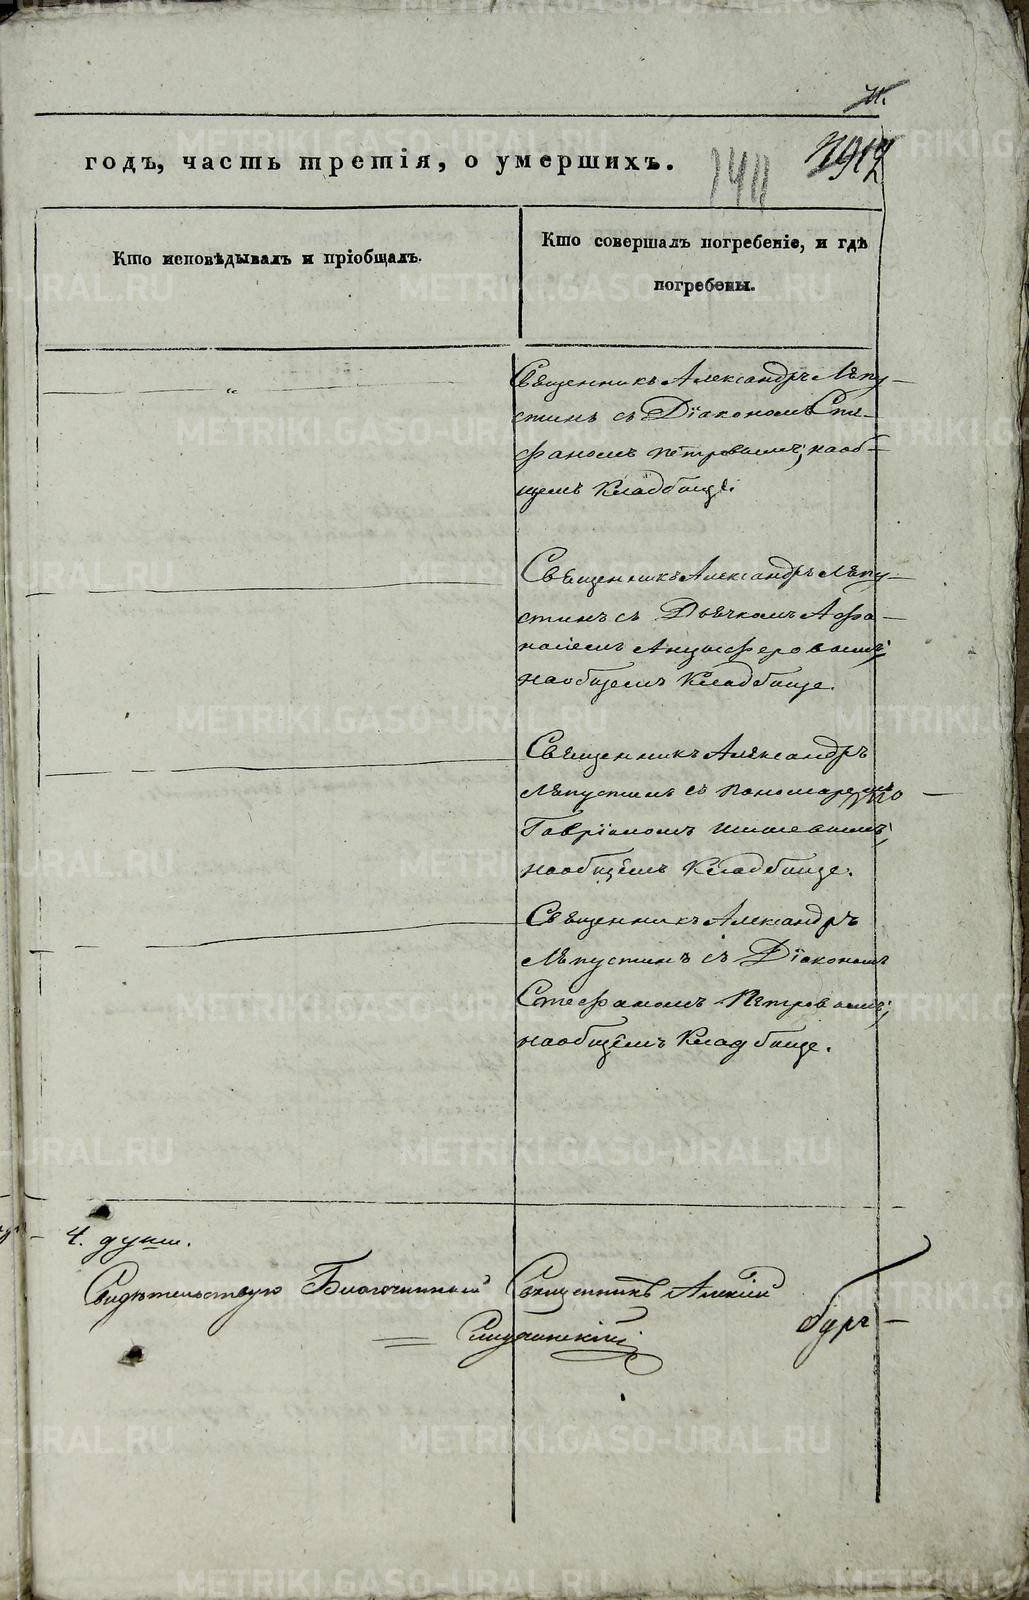 годъ, часть третія, о умершихъ.
1411
Кто исповѣдывалъ и пріобщалъ.
Кто совершалъ погребеніе, и гдѣ
погребены.
Священникъ Александръ Лѣпу-
стинъ съ Діакономъ Сте-
фаномъ Петровымъ; на об-
щемъ Кладбищѣ.
Священникъ Александръ Лѣпу-
стинъ съ Дьячкомъ Афа-
насіемъ Анцыферовымъ;
на общемъ Кладбище.
Священникъ Александръ
Лѣпустинъ съ Пономаремъ
Гавріиломъ
на общемъ Кладбище.
Священникъ Александръ
Лѣпустинъ съ Діакономъ
Стефаномъ Петровымъ;
на общемъ Кладбище.
4. души.
Свидѣтельствую Благочинный Священникъ Алексій
METRIKI.GASO-URAL.RU